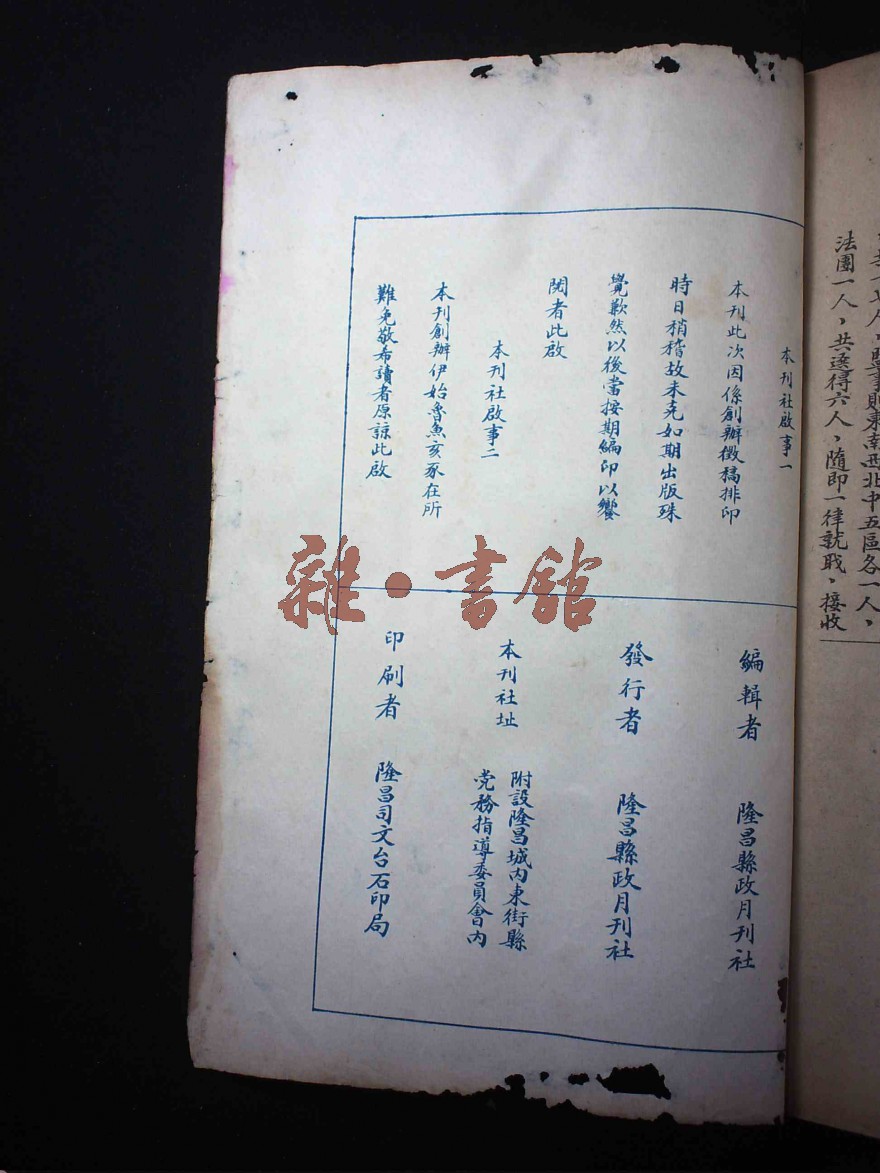 法團一人，共選得六人，隨即一律就戝，接收
本刊社啟事一
本刊此次因係創辦徵稿排印
時日稍稽故未克如期出版殊
覺歉然以後當按期編印以饗
閱者此啟
本刊社啟事二
本刊創辦伊始魯魚亥豕在所
難免敬希讀者原諒此啟
編輯者 隆昌縣政月刊社
發行者 隆昌縣政月刊社
本刊社址 附設隆昌城內東街縣
党務指導委員會內
印刷者 隆昌司文台石印局
雜·書館